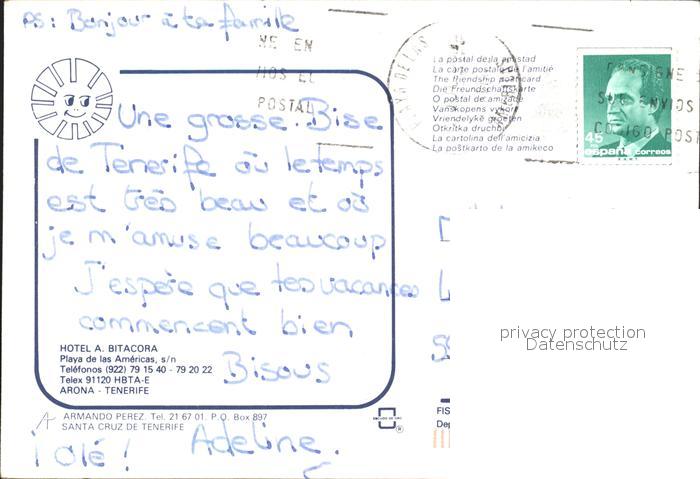 PS: Bonjour à ta famille
Une grosse Bise
de Tenerife où le temps
est très beau et où
je m'amuse beaucoup
J'espère que tes vacances
commencent bien
Bisous
Adeline.
¡Olé!
HOTEL A. BITACORA
Playa de las Américas, s/n
Teléfonos (922) 79 15 40 - 79 20 22
Telex 91120 HBTA-E
ARONA - TENERIFE
ARMANDO PEREZ. Tel. 21 67 01. P.O. Box 897
SANTA CRUZ DE TENERIFE
NE EN
POSTAL
La postal de la amistad
La carte postale de l'amitié
The friendship postcard
Die Freundschaftskarte
O postal de amizade
Vanskopens vykort
Vriendelyke groeten
Otkritka druchbi
La cartolina dell'amicizia
La postkarto de la amikeco
CONSIGNE
SUS ENVIOS
CODIGO POST
45
españa correos
privacy protection
Datenschutz
FIS
Dep